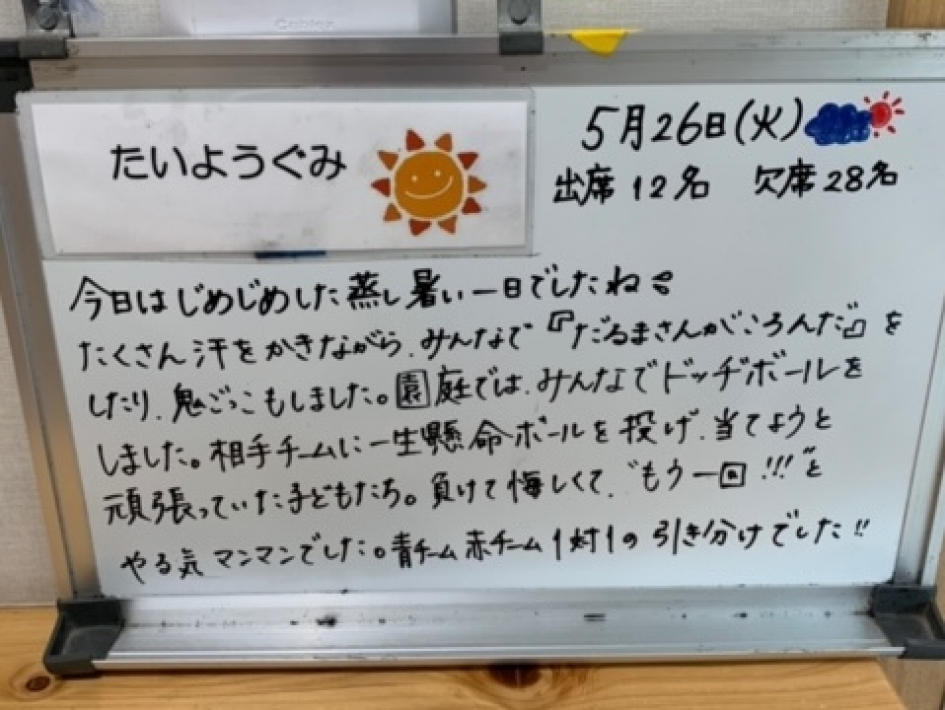 たいようぐみ
5月26日(火)
出席12名 欠席28名
今日はじめじめした蒸し暑い一日でしたね
たくさん汗をかきながら、みんなで『だるまさんがころんだ』を
したり、鬼ごっこもしました。園庭では、みんなでドッヂボールを
しました。相手チームに一生懸命ボールを投げ、当てようと
頑張っていた子どもたち。負けて悔しくて、"もう一回!!!"と
やる気マンマンでした。青チーム赤チーム1対1の引き分けでした!!